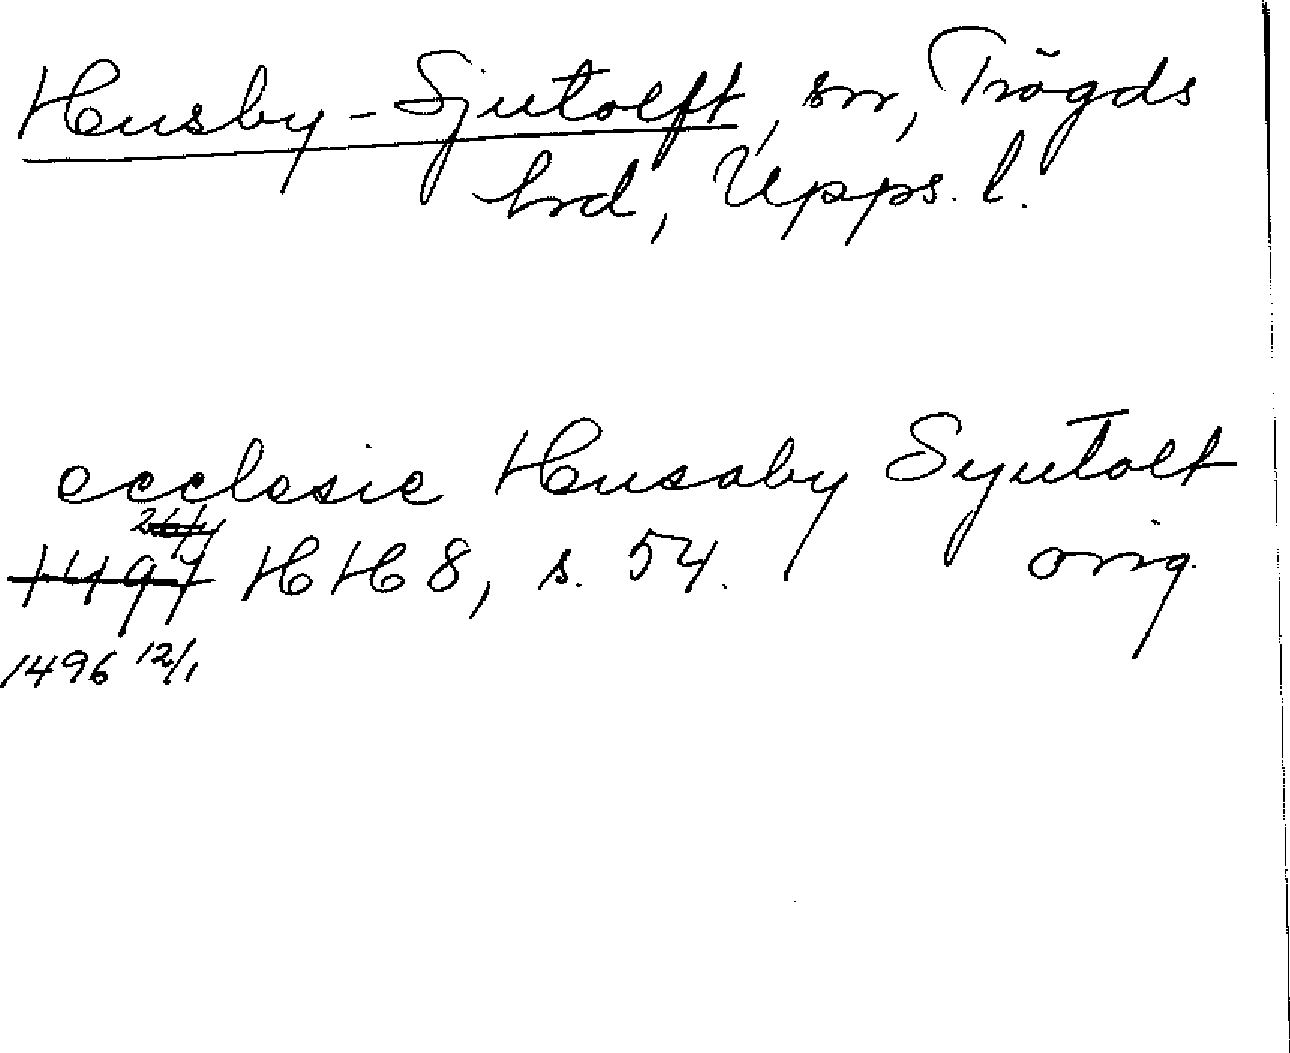 Husby-Sjutolft, sn, Trögds
hrd, Upps. l.
ecclesie Husaby Syutolt
1497 HH 8, s. 54. orig.
1496 12/1